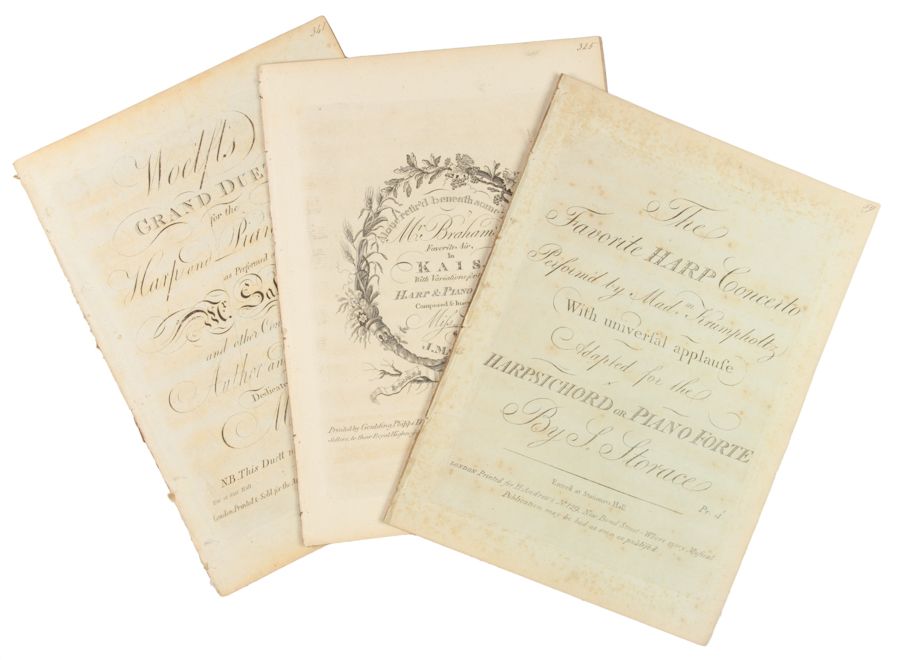 341
Woelfl's
GRAND DUE
for the
Harp and Pian
as Performed
and other Con
Author an
Dedicate
N.B. This Duett
London, Printed & Sold for the Au
325
retir'd beneath some
Mr. Braham
Favorite Air,
In
KAIS
With Variations for
HARP & PIANO
Composed & hu
Miss
J. M
Printed by Goulding, Phipps D
Sellers, to their Royal Highne
The
Favorite HARP Concerto
Perform'd by Mad.m Krumpholtz
With universal applause
Adapted for the
HARPSICHORD OR PIANO FORTE
By S. Storace
Enter'd at Stationers Hall. Pr.
LONDON Printed for H. Andrews No. 129, New Bond Street. Where every Musical
Publication may be had as soon as publish'd.